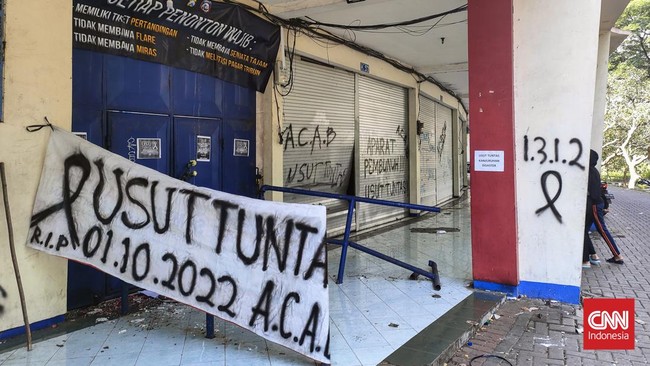 SETIAP PENONTON WAJIB :
MEMILIKI TIKET PERTANDINGAN
- TIDAK MEMBAWA FLARE
- TIDAK MEMBAWA MIRAS
- TIDAK MEMBAWA SENJATA TAJAM
- TIDAK MELITISI PAGAR TRIBUN
USUT TUNTA
R.I.P 01.10.2022
A.C.A.B
A.C.A.B
USUT
APARAT
PEMBUNUH
USUT TUNTAS
USUT TUNTAS
1.3.1.2
CNN
Indonesia